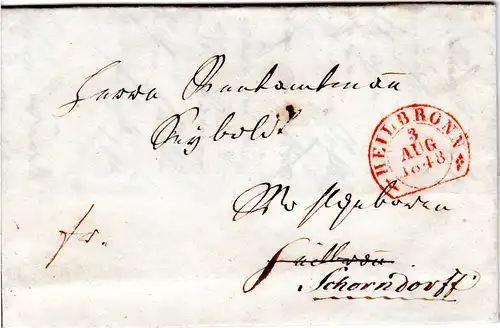 Herrn Rentamtmann
Seybold
HEILBRONN
3
AUG
1848
Wohlgeboren
fr.
Heilbronn
Schorndorff